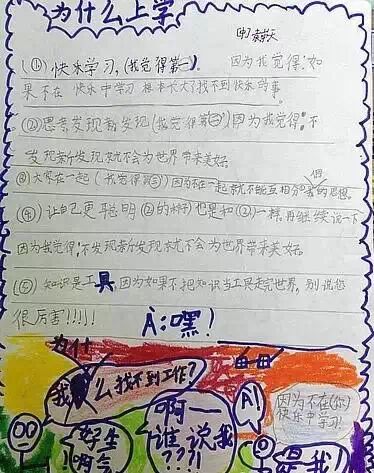 为什么上学
(1) 快乐学习, (我觉得第一). 因为我觉得:如
果不在 快乐中学习 根本长大了找不到快乐的事。
(2) 思考发现新发现(我觉得第二)因为我觉得:不
发现新发现就不会为世界带来美好。
(3) 大家在一起(我觉得第(3))因为不在一起就不能互相分享的思想。
(4) 让自己更聪明 (2)的 也是和(2)一样,再继续说一下
因为我觉得:不发现新发现就不会为世界带来美好。
(5) 知识是工具 因为如果不把知识当工具走完世界,别说您
很厉害!!!!!
A:嘿!
为什
我 么找不到工作?
好生
啊
啊一
谁说我
???!
A!
因为不在(你)
快乐下学习!
是我